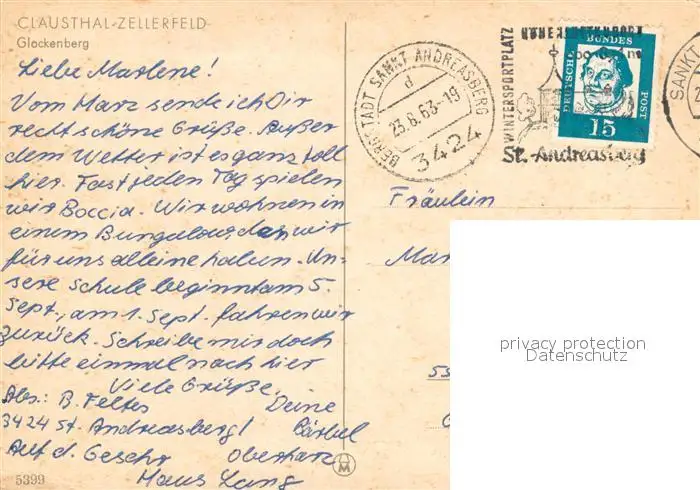 CLAUSTHAL-ZELLERFELD
Glockenberg
Liebe Marlene!
Vom Harz sende ich Dir
recht schöne Grüße. Außer
dem Wetter ist es ganz toll
hier. Fast jeden Tag spielen
wir Boccia. Wir wohnen in
einem Bungalow, den wir
für uns alleine haben. Un-
sere Schule beginnt am 5.
Sept., am 1. Sept. fahren wir
zurück. Schreibe mir doch
bitte einmal nach hier
Viele Grüße.
Deine
Bärbel
Abs.: B. Feltes
3424 St. Andreasberg/
Oberharz
Auf d. Gesehr
Haus Lang
5399
BERGSTADT SANKT ANDREASBERG
d
23.8.63-19
3424
WINTERSPORTPLATZ
St. Andreasberg
DEUTSCHE BUNDESPOST
15
SANKT
Fräulein
Mar
53
privacy protection
Datenschutz